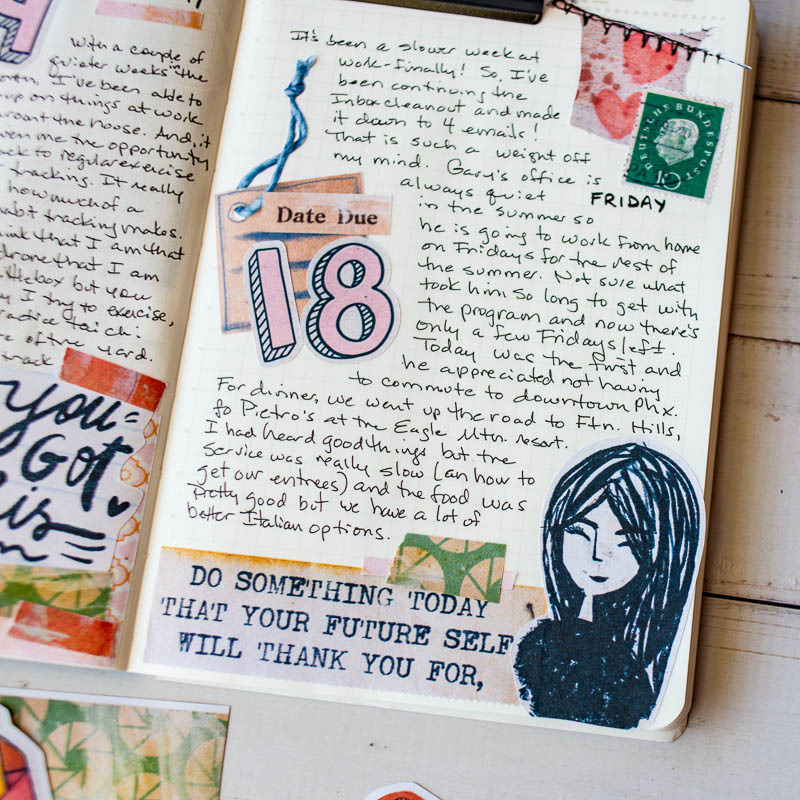 with a couple of
quieter weeks in the
I've been able to
up on things at work
around the house. And, it
given me the opportunity
back to regular exercise
tracking. It really
how much of a
habit tracking makes.
think that I am that
drone that I am
little box but you
I try to exercise,
practice taichi
of the yard.
track
you
Got
this
It's been a slower week at
work-finally! So, I've
been continuing the
Inbox cleanout and made
it down to 4 emails!
That is such a weight off
my mind. Gary's office is
always quiet
in the summer so
he is going to work from home
on Fridays for the rest of
the summer. Not sure what
took him so long to get with
the program and now there's
only a few Fridays left.
Today was the first and
he appreciated not having
to commute to downtown Phx.
DEUTSCHE BUNDESPOST
10
FRIDAY
Date Due
18
For dinner, we went up the road to Ftn. Hills,
to Pietro's at the Eagle Mtn. resort.
I had heard good things but the
service was really slow (an hour to
get our entrees) and the food was
pretty good but we have a lot of
better Italian options.
DO SOMETHING TODAY
THAT YOUR FUTURE SELF
WILL THANK YOU FOR,